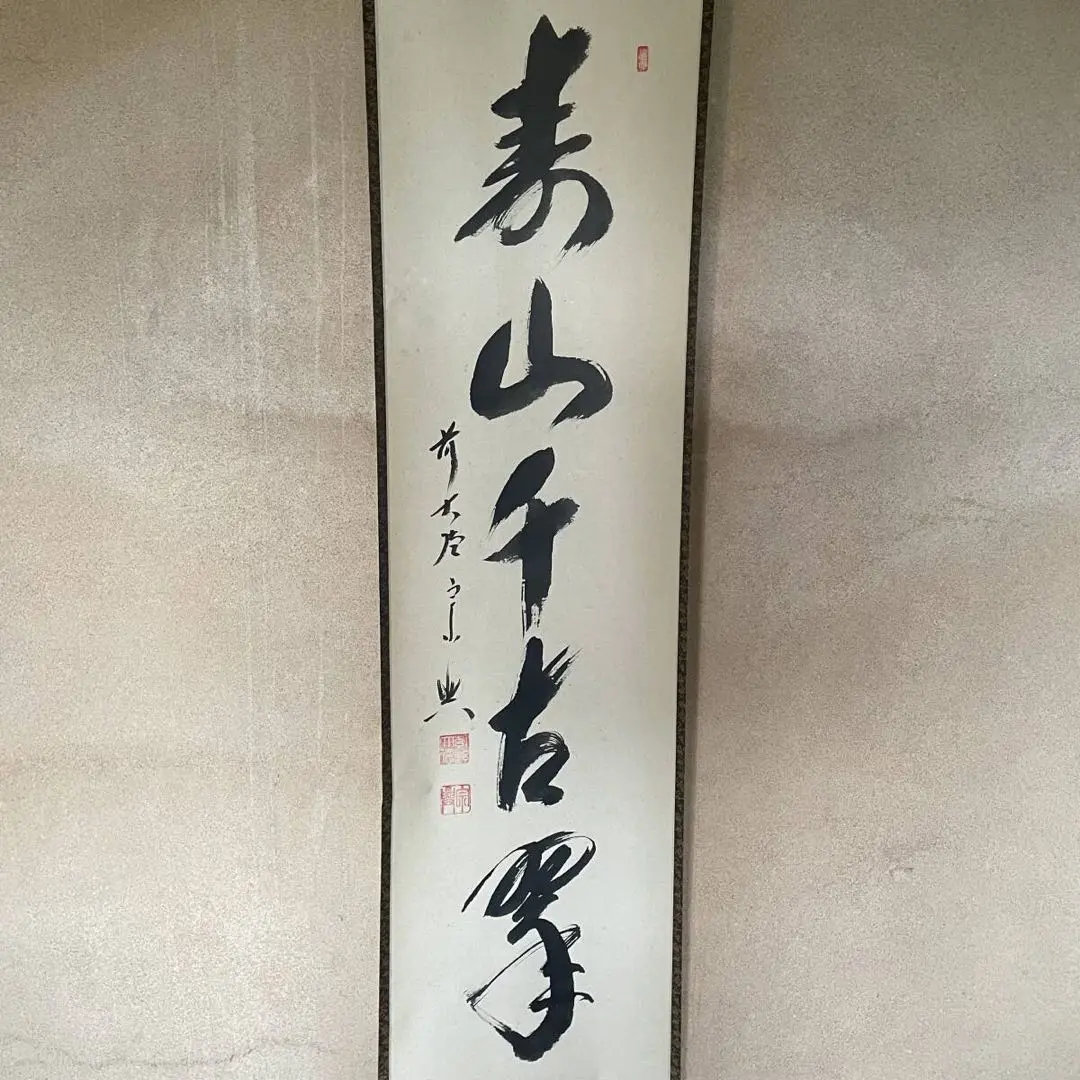 寿山千古翠
前大徳宗典